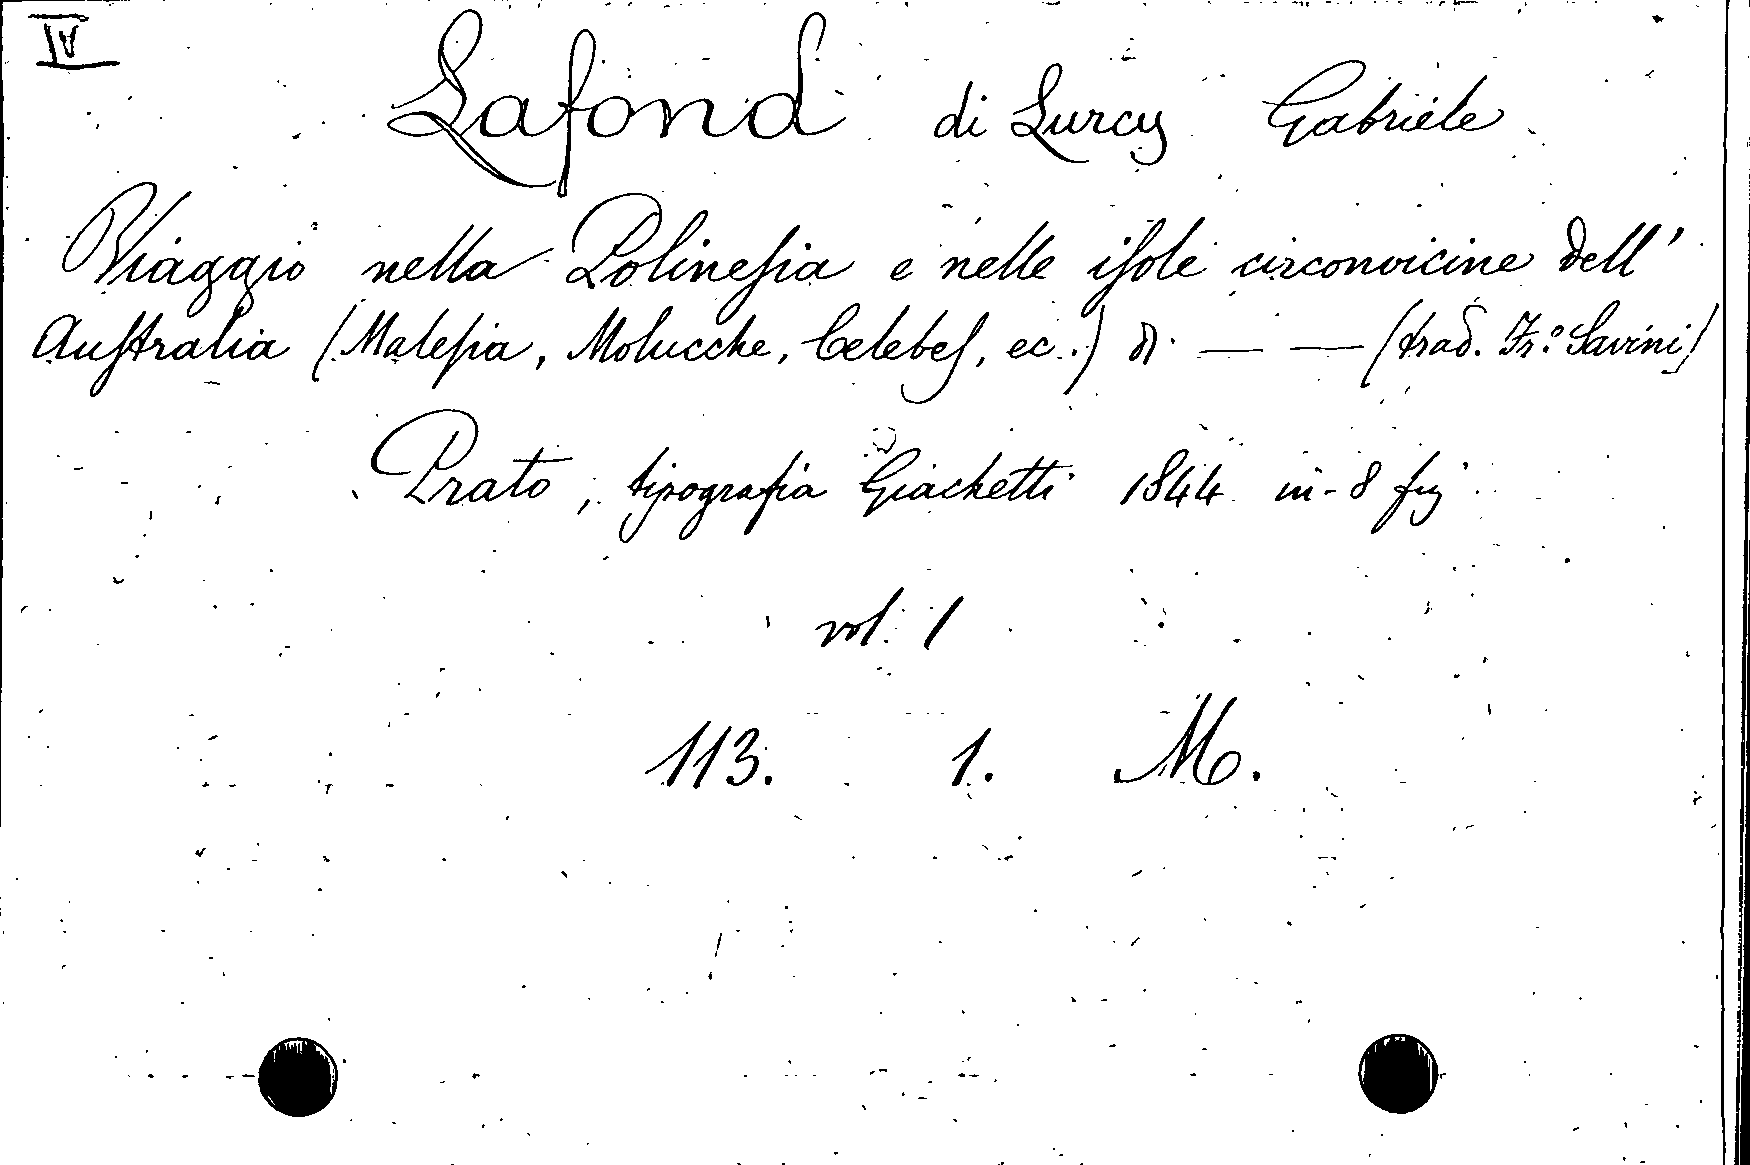 IV
Lafond di Lurcy Gabriele
Viaggio nella Polineſia e nelle iſole circonvicine dell'
Auſtralia (Maleſia, Molucche, Celebeſ, ec.) di — — (trad. Fr.º Savini)
Prato, tipografia Giachetti 1844 in-8 fig
vol. 1
113. 1. M.